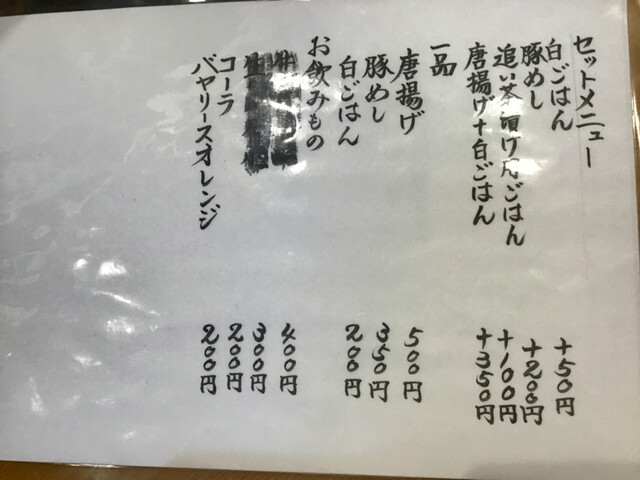 セットメニュー
白ごはん +50円
豚めし +200円
追い茶漬け用ごはん +100円
唐揚げ+白ごはん +350円
一品
唐揚げ 500円
豚めし 350円
白ごはん 200円
お飲みもの
400円
300円
コーラ 200円
バヤリースオレンジ 200円